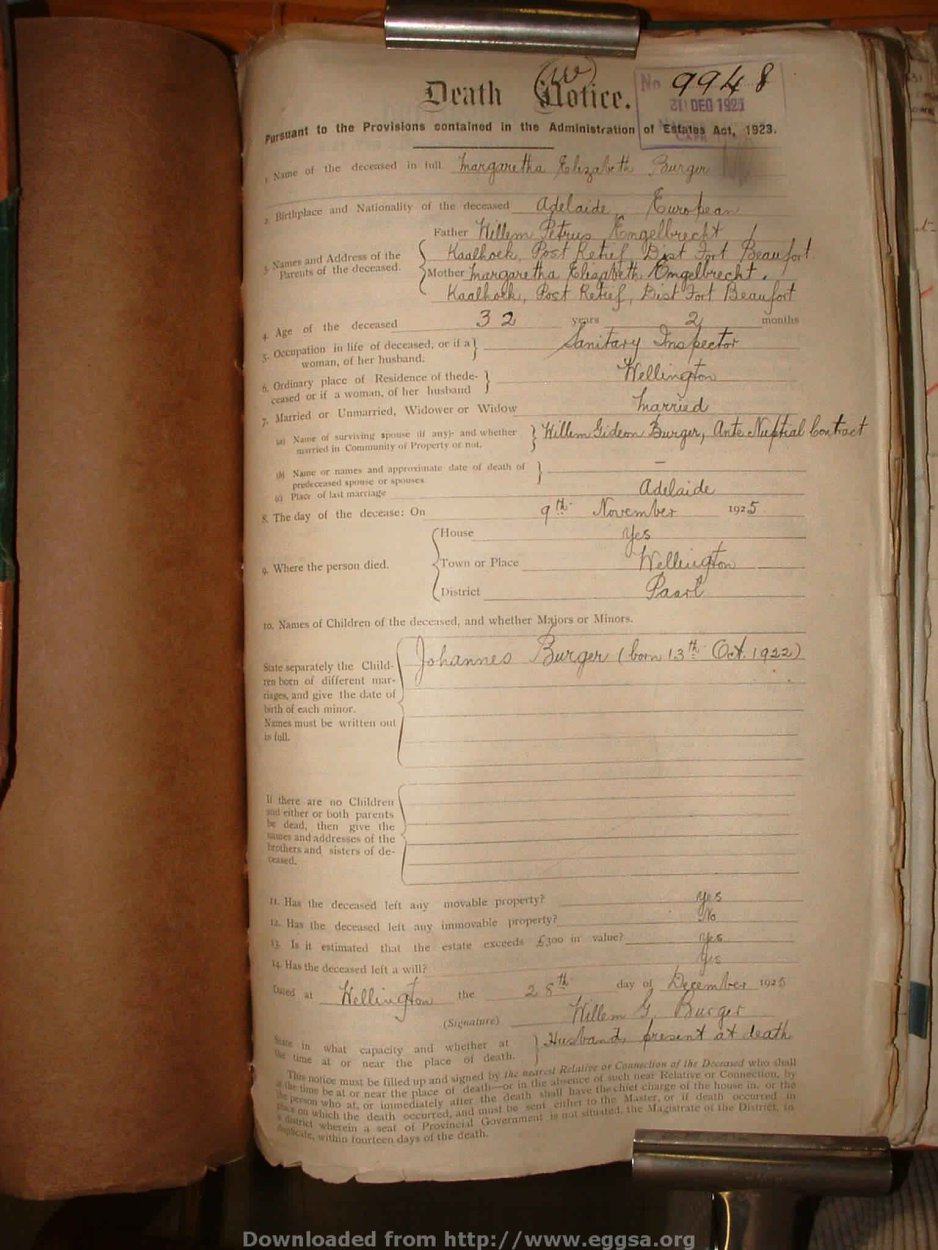 Death Notice.
W
No 9948
31 DEC 1925
Pursuant to the Provisions contained in the Administration of Estates Act, 1923.
1. Name of the deceased in full Margaretha Elizabeth Burger
2. Birthplace and Nationality of the deceased Adelaide European
3. Names and Address of the Parents of the deceased.
Father Willem Petrus Engelbrecht
Kaalhoek, Post Retief, Dist Fort Beaufort
Mother Margaretha Elizabeth Engelbrecht.
Kaalhoek, Post Retief, Dist Fort Beaufort
4. Age of the deceased 32 years 2 months
5. Occupation in life of deceased, or if a
woman, of her husband. Sanitary Inspector
6. Ordinary place of Residence of thede-
ceased or if a woman, of her husband Wellington
7. Married or Unmarried, Widower or Widow Married
(a) Name of surviving spouse (if any)- and whether
married in Community of Property or not. Willem Gideon Burger, Ante Nuptial Contract
(b) Name or names and approximate date of death of
predeceased spouse or spouses –
(c) Place of last marriage Adelaide
8. The day of the decease: On 9th November 1925
9. Where the person died.
House Yes
Town or Place Wellington
District Paarl
10. Names of Children of the deceased, and whether Majors or Minors.
State separately the Child-
ren born of different mar-
riages, and give the date of
birth of each minor.
Names must be written out
in full.
Johannes Burger (born 13th Oct. 1922)
If there are no Children
and either or both parents
be dead, then give the
names and addresses of the
brothers and sisters of de-
ceased.
11. Has the deceased left any movable property? Yes
12. Has the deceased left any immovable property? No
13. Is it estimated that the estate exceeds £300 in value? Yes
14. Has the deceased left a will? Yes
Dated at Wellington the 28th day of December 1925
(Signature) Willem G. Burger
State in what capacity and whether at
the time at or near the place of death. Husband, present at death
This notice must be filled up and signed by the nearest Relative or Connection of the Deceased who shall
at the time be at or near the place of death—or in the absence of such near Relative or Connection, by
the person who at, or immediately after the death shall have the chief charge of the house in, or the
place on which the death occurred, and must be sent either to the Master, or if death occurred in
a district wherein a seat of Provincial Government is not situated, the Magistrate of the District, in
duplicate, within fourteen days of the death.
Downloaded from http://www.eggsa.org